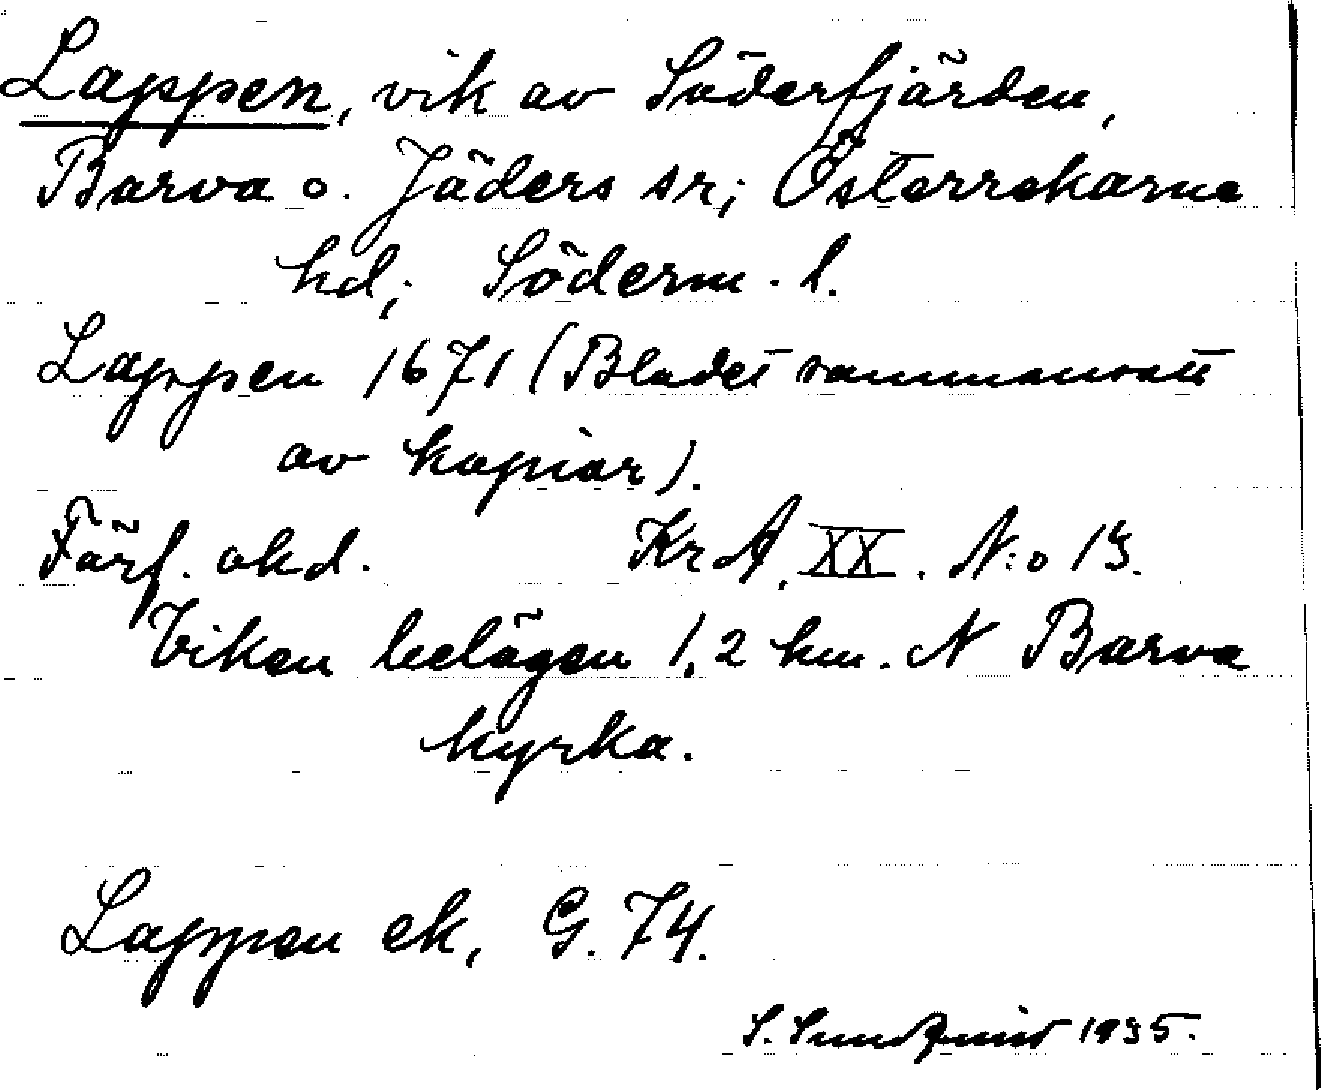 Lappen, vik av Söderfjärden,
Barva o. Jäders sr; Österrekarne
hd; Söderm. l.
Lappen 1671 (Bladet sammansatt
av kopior).
Förf. okd. Kr A. XX. N:o 13.
Viken belägen 1,2 km. N Barva
kyrka.
Lappen ek, G. 74.
S. Sundquist 1935.